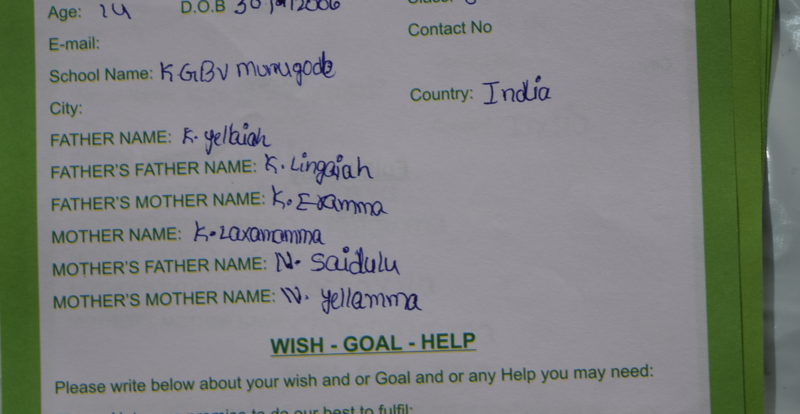 Age: 14 D.O.B 30/9/2006
E-mail: Contact No
School Name: KGBV munugode
City: Country: India
FATHER NAME: K. yellaiah
FATHER'S FATHER NAME: K. Lingaiah
FATHER'S MOTHER NAME: K. Eramma
MOTHER NAME: K. Laxamamma
MOTHER'S FATHER NAME: N. Saidulu
MOTHER'S MOTHER NAME: N. yellamma
WISH - GOAL - HELP
Please write below about your wish and or Goal and or any Help you may need:
to do our best to fulfil: